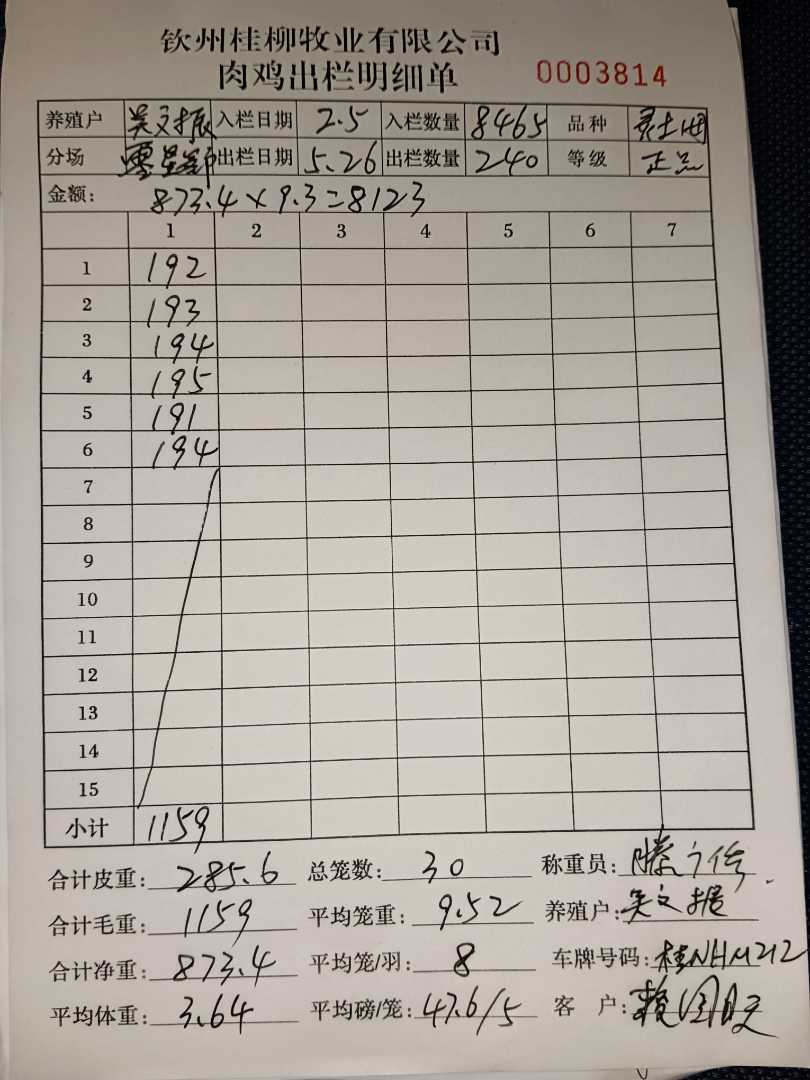 钦州桂柳牧业有限公司
肉鸡出栏明细单 0003814
养殖户 吴文振 入栏日期 2.5 入栏数量 8465 品种
分场 出栏日期 5.26 出栏数量 240 等级 正品
金额: 873.4×9.3=8123
1 2 3 4 5 6 7
1 192
2 193
3 194
4 195
5 191
6 194
7
8
9
10
11
12
13
14
15
小计 1159
合计皮重: 285.6 总笼数: 30 称重员:
合计毛重: 1159 平均笼重: 9.52 养殖户: 吴文振
合计净重: 873.4 平均笼/羽: 8 车牌号码: 桂NHM212
平均体重: 3.64 平均磅/笼: 47.6/5 客 户: